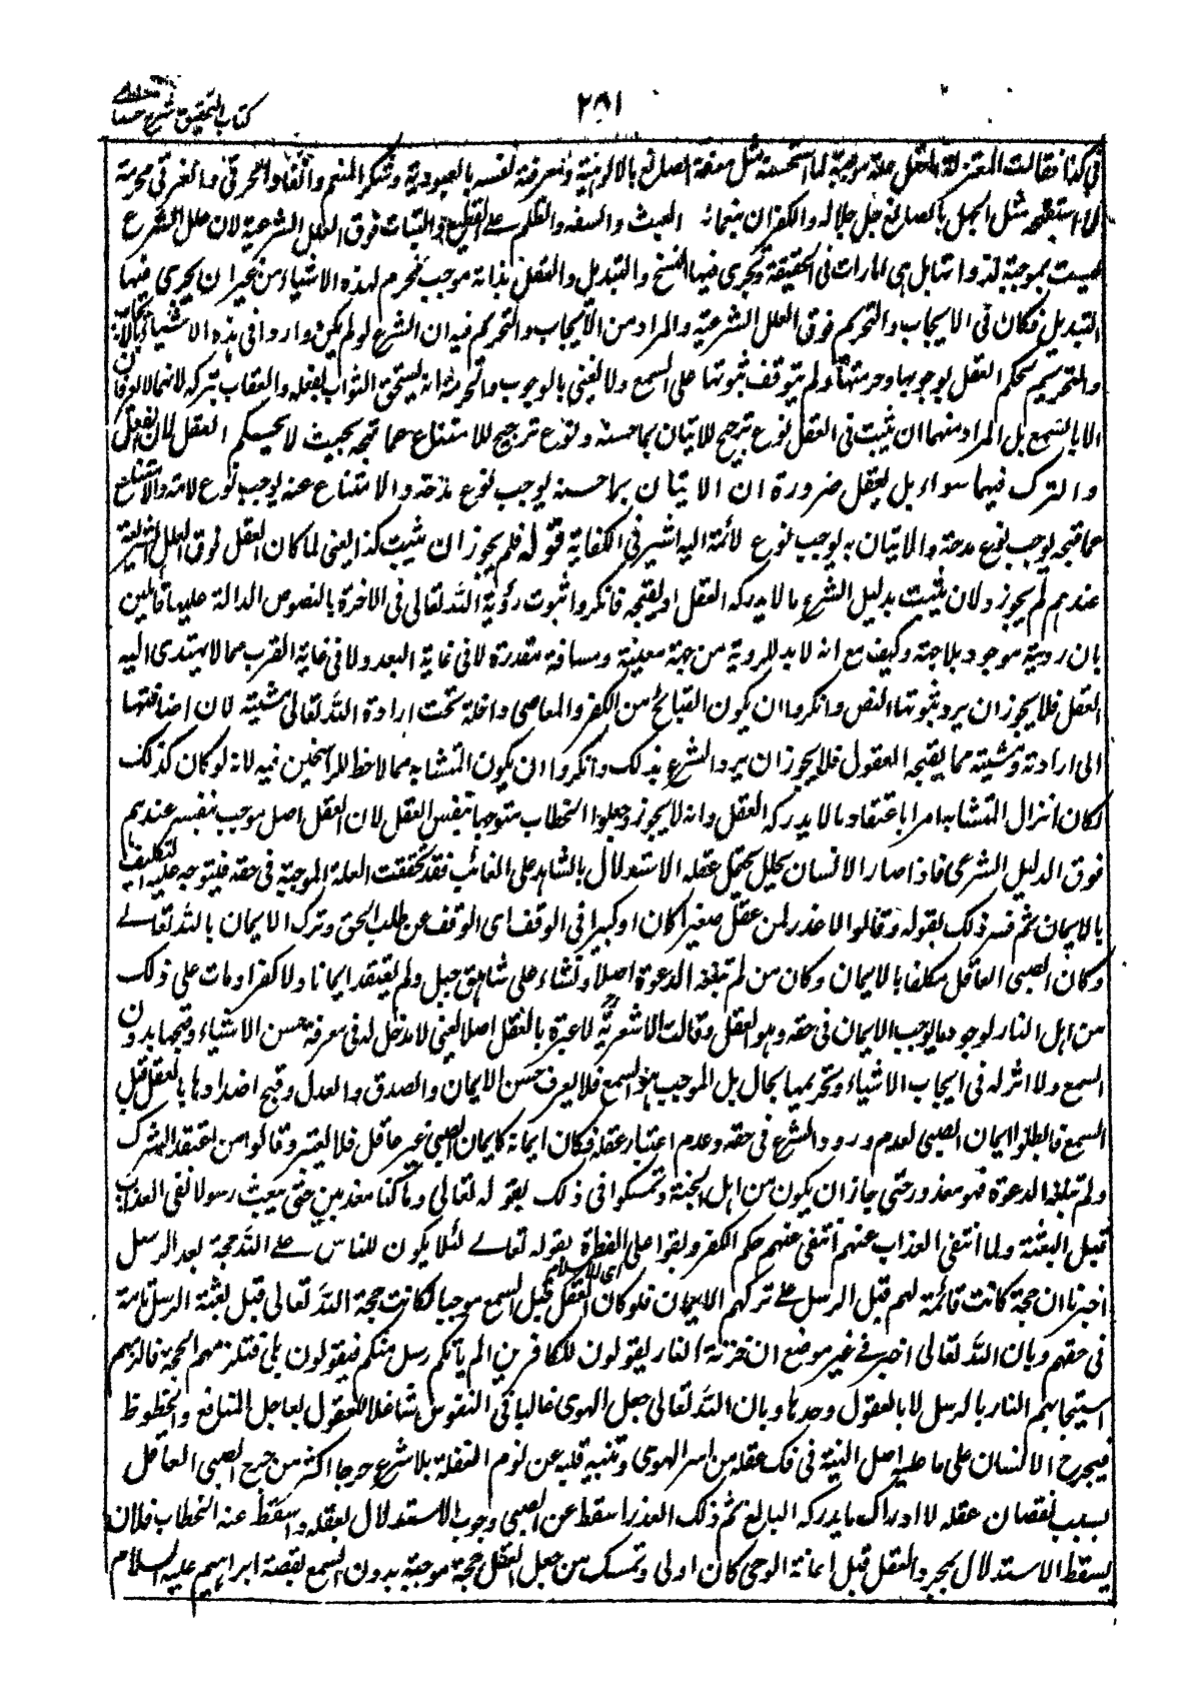 كتاب التحقيق شرح حسامى
٢٥١
فى كذا فقالت المعتزلة العقل علة موجبة لما استحسنه مثل معرفة الصانع بالالوهية ومعرفة نفسه بالعبودية وشكر المنعم وانقاذ الحرقى والغرقى محرمة
لما استقبحه مثل الجهل بالصانع جل جلاله والكفران بنعمائه والعبث والسفه والظلم على القطع والثبات فوق العلل الشرعية لان علل الشرع
ليست بموجبة لذواتها بل هى امارات فى الحقيقة وتجرى فيها النسخ والتبديل والعقل بذاته موجب محرم لهذه الاشياء من غير ان يجرى فيها
التبديل فكان فى الايجاب والتحريم فوق العلل الشرعية والمراد من الايجاب والتحريم فيه ان الشرع لو لم يكن واردا فى هذه الاشياء بالايجاب
والتحريم لحكم العقل بوجوبها وحرمتها ولم يتوقف ثبوتها على السمع ولا يعنى بالوجوب والحرمة انه يستحق الثواب بفعله والعقاب بتركه لانهما لا يعرفان
الا بالسمع بل المراد منهما ان يثبت فى العقل نوع ترجيح للاتيان بما حسنه ونوع ترجيح للامتناع عما قبحه بحيث لا يحكم العقل بان الفعل
والترك فيهما سواء بل يعقل ضرورة ان الاتيان بما حسنه يوجب نوع مدحة والامتناع عنه يوجب نوع لائمة والامتناع
عما قبحه يوجب نوع مدحة والاتيان به يوجب نوع لائمة اليه اشير فى الكفاية قوله فلم يجوزوا ان يثبت كذا يعنى لما كان العقل فوق العلل الشرعية
عندهم لم يجوزوا ان يثبت بدليل الشرع ما لا يدركه العقل او يقبحه فانكروا ثبوت رؤية الله تعالى فى الاخرة بالنصوص الدالة عليها قائلين
بان روية موجود بلا جهة وكيف مع انه لا بد للروية من جهة معينة ومسافة مقدرة لا فى غاية البعد ولا فى غاية القرب مما لا يهتدى اليه
العقل فلا يجوز ان يرد بثبوتها النص وانكروا ان يكون القبائح من الكفر والمعاصى داخلة تحت ارادة الله تعالى ومشيته لان اضافتها
الى ارادته ومشيته مما يقبحه العقول فلا يجوز ان يرد الشرع بذلك وانكروا ان يكون المتشابه مما لا حظ للراسخين فيه لانه لو كان كذلك
لكان انزال المتشابه امرا باعتقاد ما لا يدركه العقل وانه لا يجوز وجعلوا الخطاب متوجها بنفس العقل لان العقل اصل موجب بنفسه عندهم
فوق الدليل الشرعى فاذا صار الانسان بحال يحتمل عقله الاستدلال بالشاهد على الغائب فقد تحققت العلة الموجبة فى حقه فيتوجه عليه التكليف
بالايمان ثم فسر ذلك بقوله وقالوا لا عذر لمن عقل صغيرا كان او كبيرا فى الوقف اى الوقف عن طلب الحق وترك الايمان بالله تعالى
وكان الصبى العاقل مكلفا بالايمان وكان من لم تبلغه الدعوة اصلا ونشاء على شاهق جبل ولم يعتقد ايمانا ولا كفرا ومات على ذلك
من اهل النار لوجود ما يوجب الايمان فى حقه وهو العقل وقالت الاشعرية لا عبرة بالعقل اصلا يعنى لا مدخل له فى معرفة حسن الاشياء وقبحها بدون
السمع ولا اثر له فى ايجاب الاشياء وتحريمها بحال بل الموجب هو السمع فلا يعرف حسن الايمان والصدق والعدل وقبح اضدادها بالعقل قبل
السمع فابطلوا ايمان الصبى لعدم ورود الشرع فى حقه وعدم اعتبار عقله فكان ايمانه كايمان الصبى غير عاقل فلا يعتبر وقالوا من اعتقد الشرك
ولم تبلغه الدعوة فهو معذور حتى جاز ان يكون من اهل الجنة وتمسكوا فى ذلك بقوله تعالى وما كنا معذبين حتى نبعث رسولا نفى العذاب
قبل البعثة ولما انتفى العذاب عنهم انتفى عنهم حكم الكفر وبقوا على الفطرة بقوله تعالى لئلا يكون للناس على الله حجة بعد الرسل
اى الاسلام
اخبرنا ان حجة كانت قائمة لهم قبل الرسل على تركهم الايمان فلو كان العقل قبل السمع موجبا لكانت حجة الله تعالى قبل بعثة الرسل تامة
فى حقهم وبان الله تعالى اخبر فى غير موضع ان خزنة النار يقولون للكافرين الم ياتكم رسل منكم فيقولون بلى فتلزمهم الحجة فالزمهم
استيجابهم النار بالرسل لا بالعقول وحدها وبان الله تعالى جعل الهوى غالبا فى النفوس شاغلا للعقول بعاجل المنافع والحظوظ
فيحرج الانسان على ما عليه اصل البنية فى فك عقله من اسر الهوى وتنبيه قلبه عن نوم الغفلة بلا شرع حرجا اكثر من حرج الصبى العاقل
بسبب نقصان عقله لا ادراك ما يدركه البالغ ثم ذلك العذر اسقط عن الصبى وجوب الاستدلال بعقله واسقط عنه الخطاب فلان
يسقط الاستدلال بمجرد العقل قبل اعانة الوحى كان اولى وتمسك من جعل العقل حجة موجبة بدون السمع بقصة ابراهيم عليه السلام